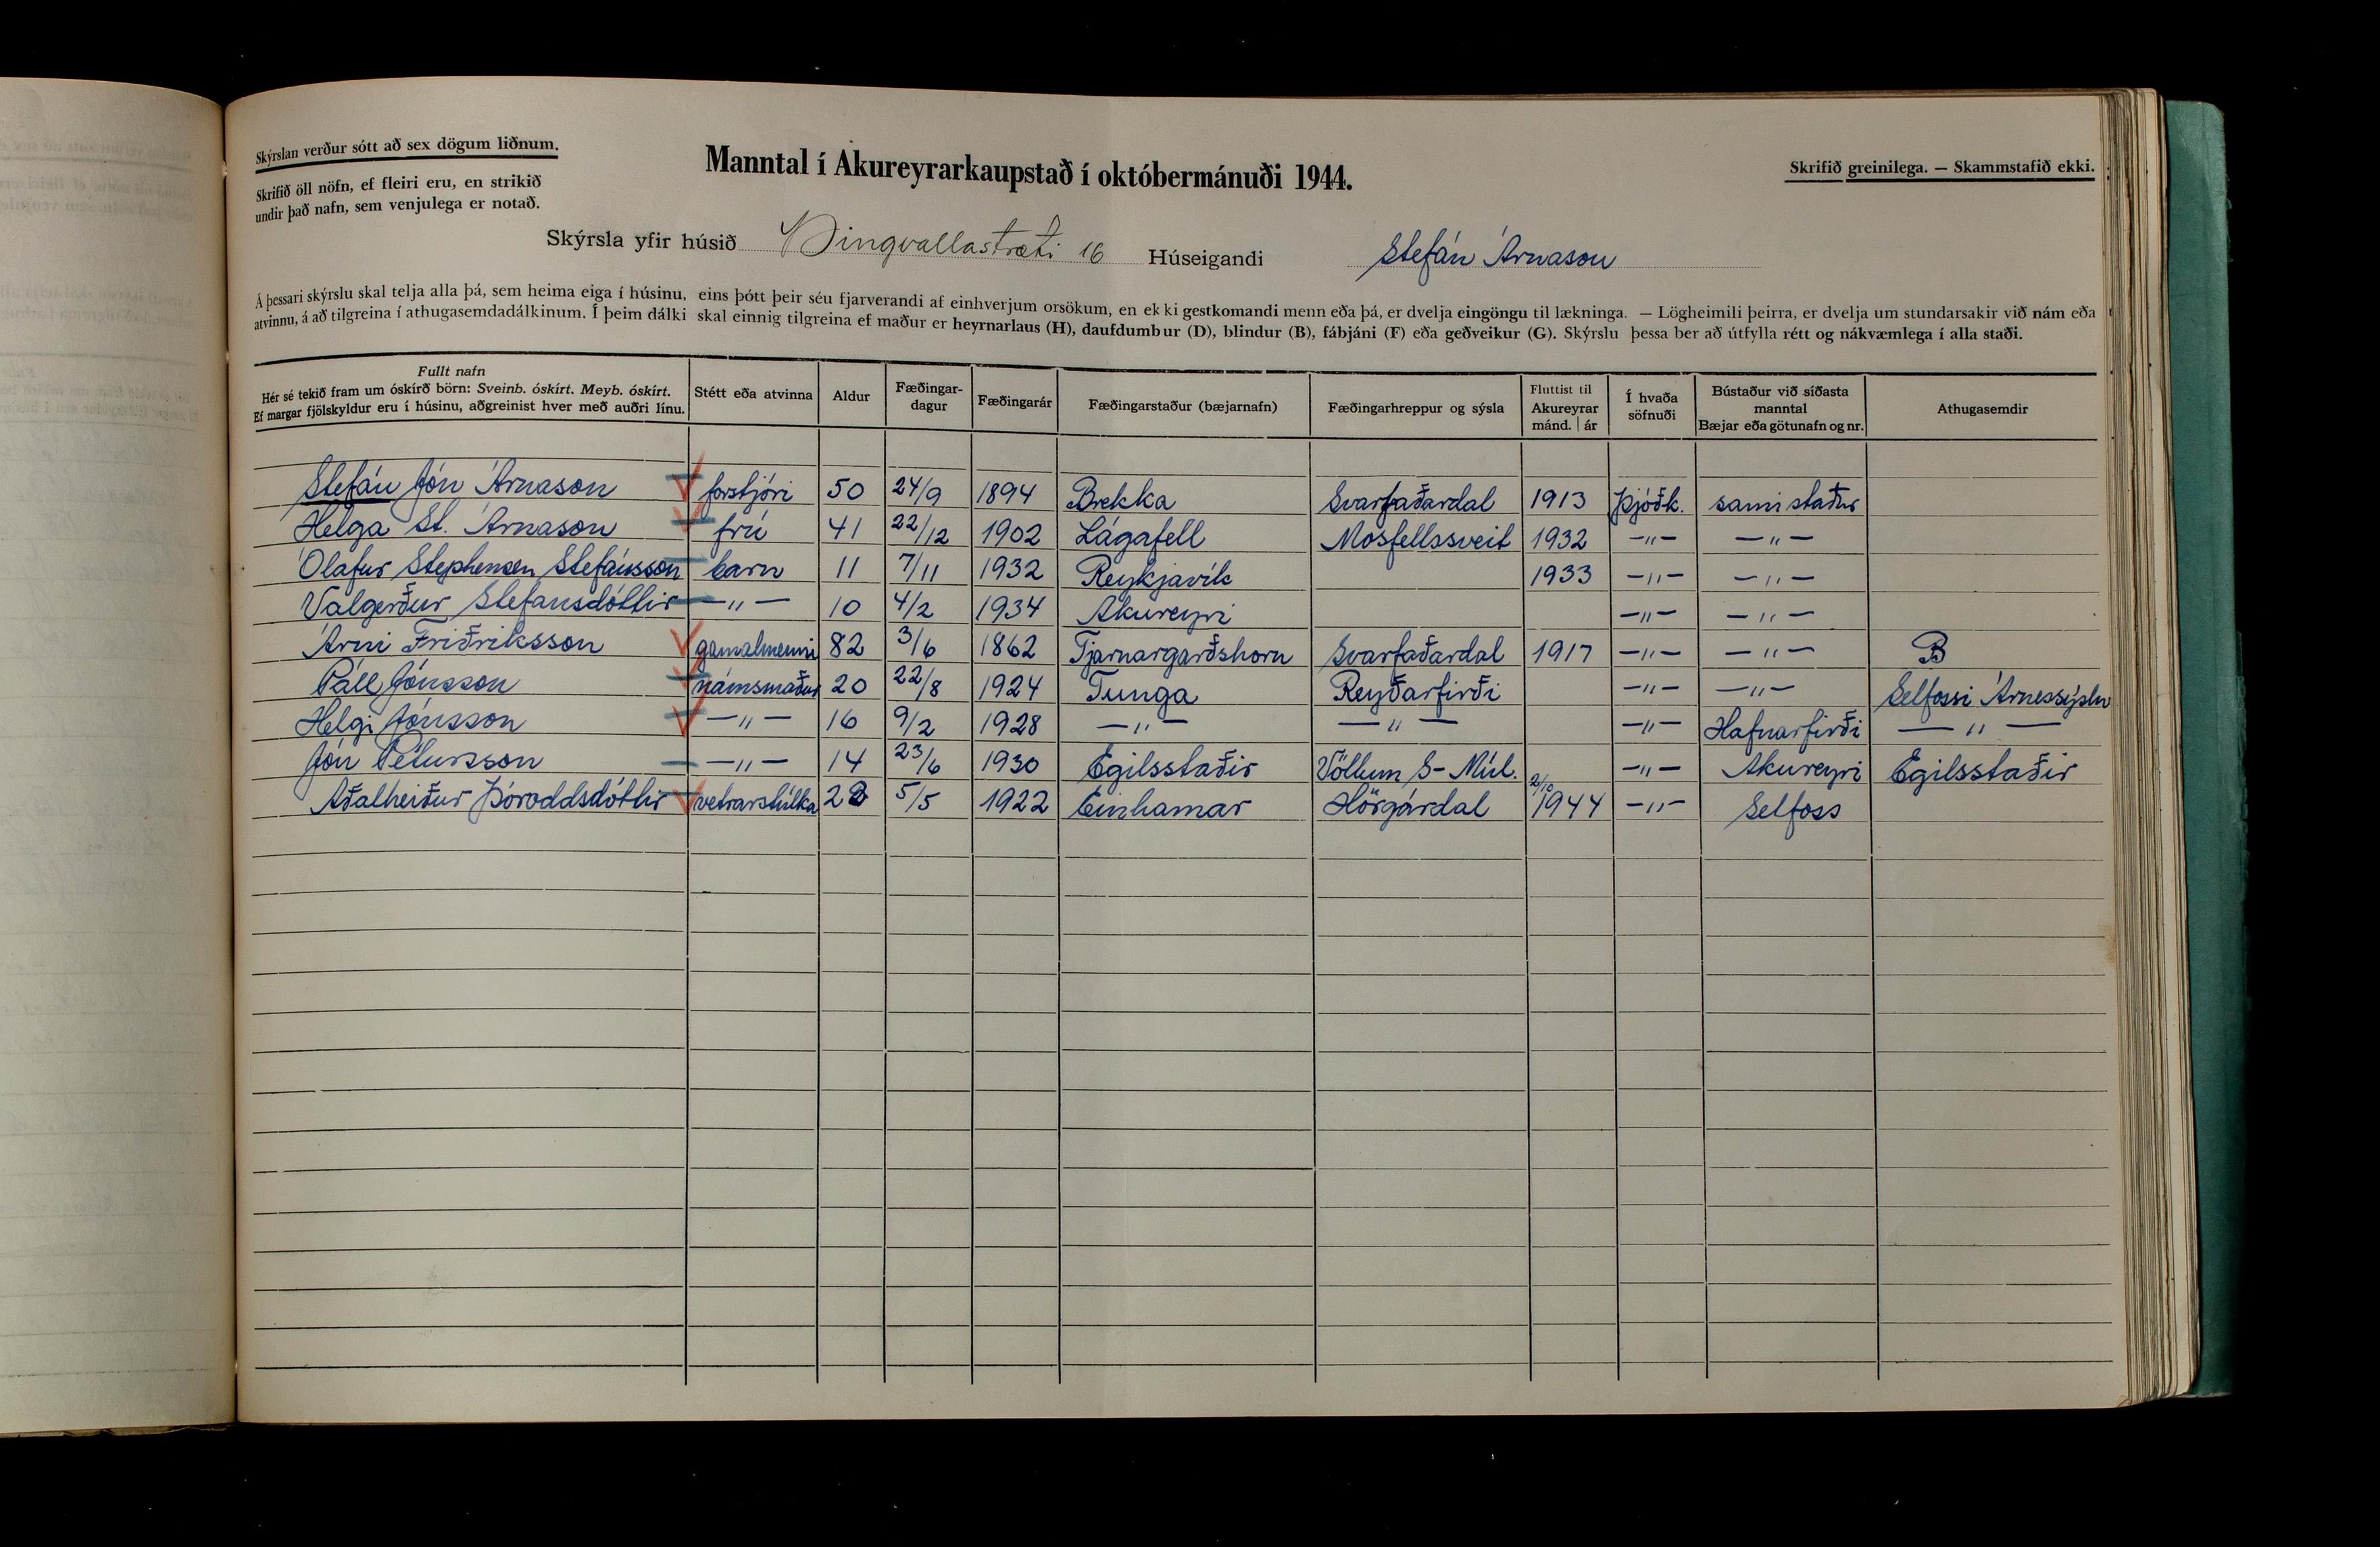 Skýrslan verður sótt að sex dögum liðnum.
Skrifið öll nöfn, ef fleiri eru, en strikið
undir það nafn, sem venjulega er notað.
Manntal í Akureyrarkaupstað í októbermánuði 1944.
Skrifið greinilega. — Skammstafið ekki.
Skýrsla yfir húsið Þingvallastræti 16 Húseigandi Stefán Árnason
Á þessari skýrslu skal telja alla þá, sem heima eiga í húsinu, eins þótt þeir séu fjarverandi af einhverjum orsökum, en ekki gestkomandi menn eða þá, er dvelja eingöngu til lækninga. — Lögheimili þeirra, er dvelja um stundarsakir við nám eða
atvinnu, á að tilgreina í athugasemdadálkinum. Í þeim dálki skal einnig tilgreina ef maður er heyrnarlaus (H), daufdumbur (D), blindur (B), fábjáni (F) eða geðveikur (G). Skýrslu þessa ber að útfylla rétt og nákvæmlega í alla staði.
Fullt nafn
Hér sé tekið fram um óskírð börn: Sveinb. óskírt. Meyb. óskírt.
Ef margar fjölskyldur eru í húsinu, aðgreinist hver með auðri línu.
Stétt eða atvinna
Aldur
Fæðingar-
dagur
Fæðingarár
Fæðingarstaður (bæjarnafn)
Fæðingarhreppur og sýsla
Fluttist til
Akureyrar
mánd. | ár
Í hvaða
söfnuði
Bústaður við síðasta
manntal
Bæjar eða götunafn og nr.
Athugasemdir
Stefán Jón Árnason forstjóri 50 24/9 1894 Brekka Svarfaðardal 1913 Þjóðk. sami staður
Helga St. Árnason frú 41 22/12 1902 Lágafell Mosfellssveit 1932 —"— —"—
Ólafur Stephensen Stefánsson barn 11 7/11 1932 Reykjavík 1933 —"— —"—
Valgerður Stefánsdóttir —"— 10 4/2 1934 Akureyri —"— —"—
Árni Friðriksson gamalmenni 82 3/6 1862 Tjarnargarðshorn Svarfaðardal 1917 —"— —"— B
Páll Jónsson námsmaður 20 22/8 1924 Tunga Reyðarfirði —"— —"— Selfossi Árnessýslu
Helgi Jónsson —"— 16 9/2 1928 —"— —"— —"— Hafnarfirði —"—
Jón Pétursson —"— 14 23/6 1930 Egilsstaðir Völlum S-Múl. —"— Akureyri Egilsstaðir
Aðalheiður Þóroddsdóttir vetrarstúlka 22 5/5 1922 Einhamar Hörgárdal 2/10 1944 —"— Selfoss